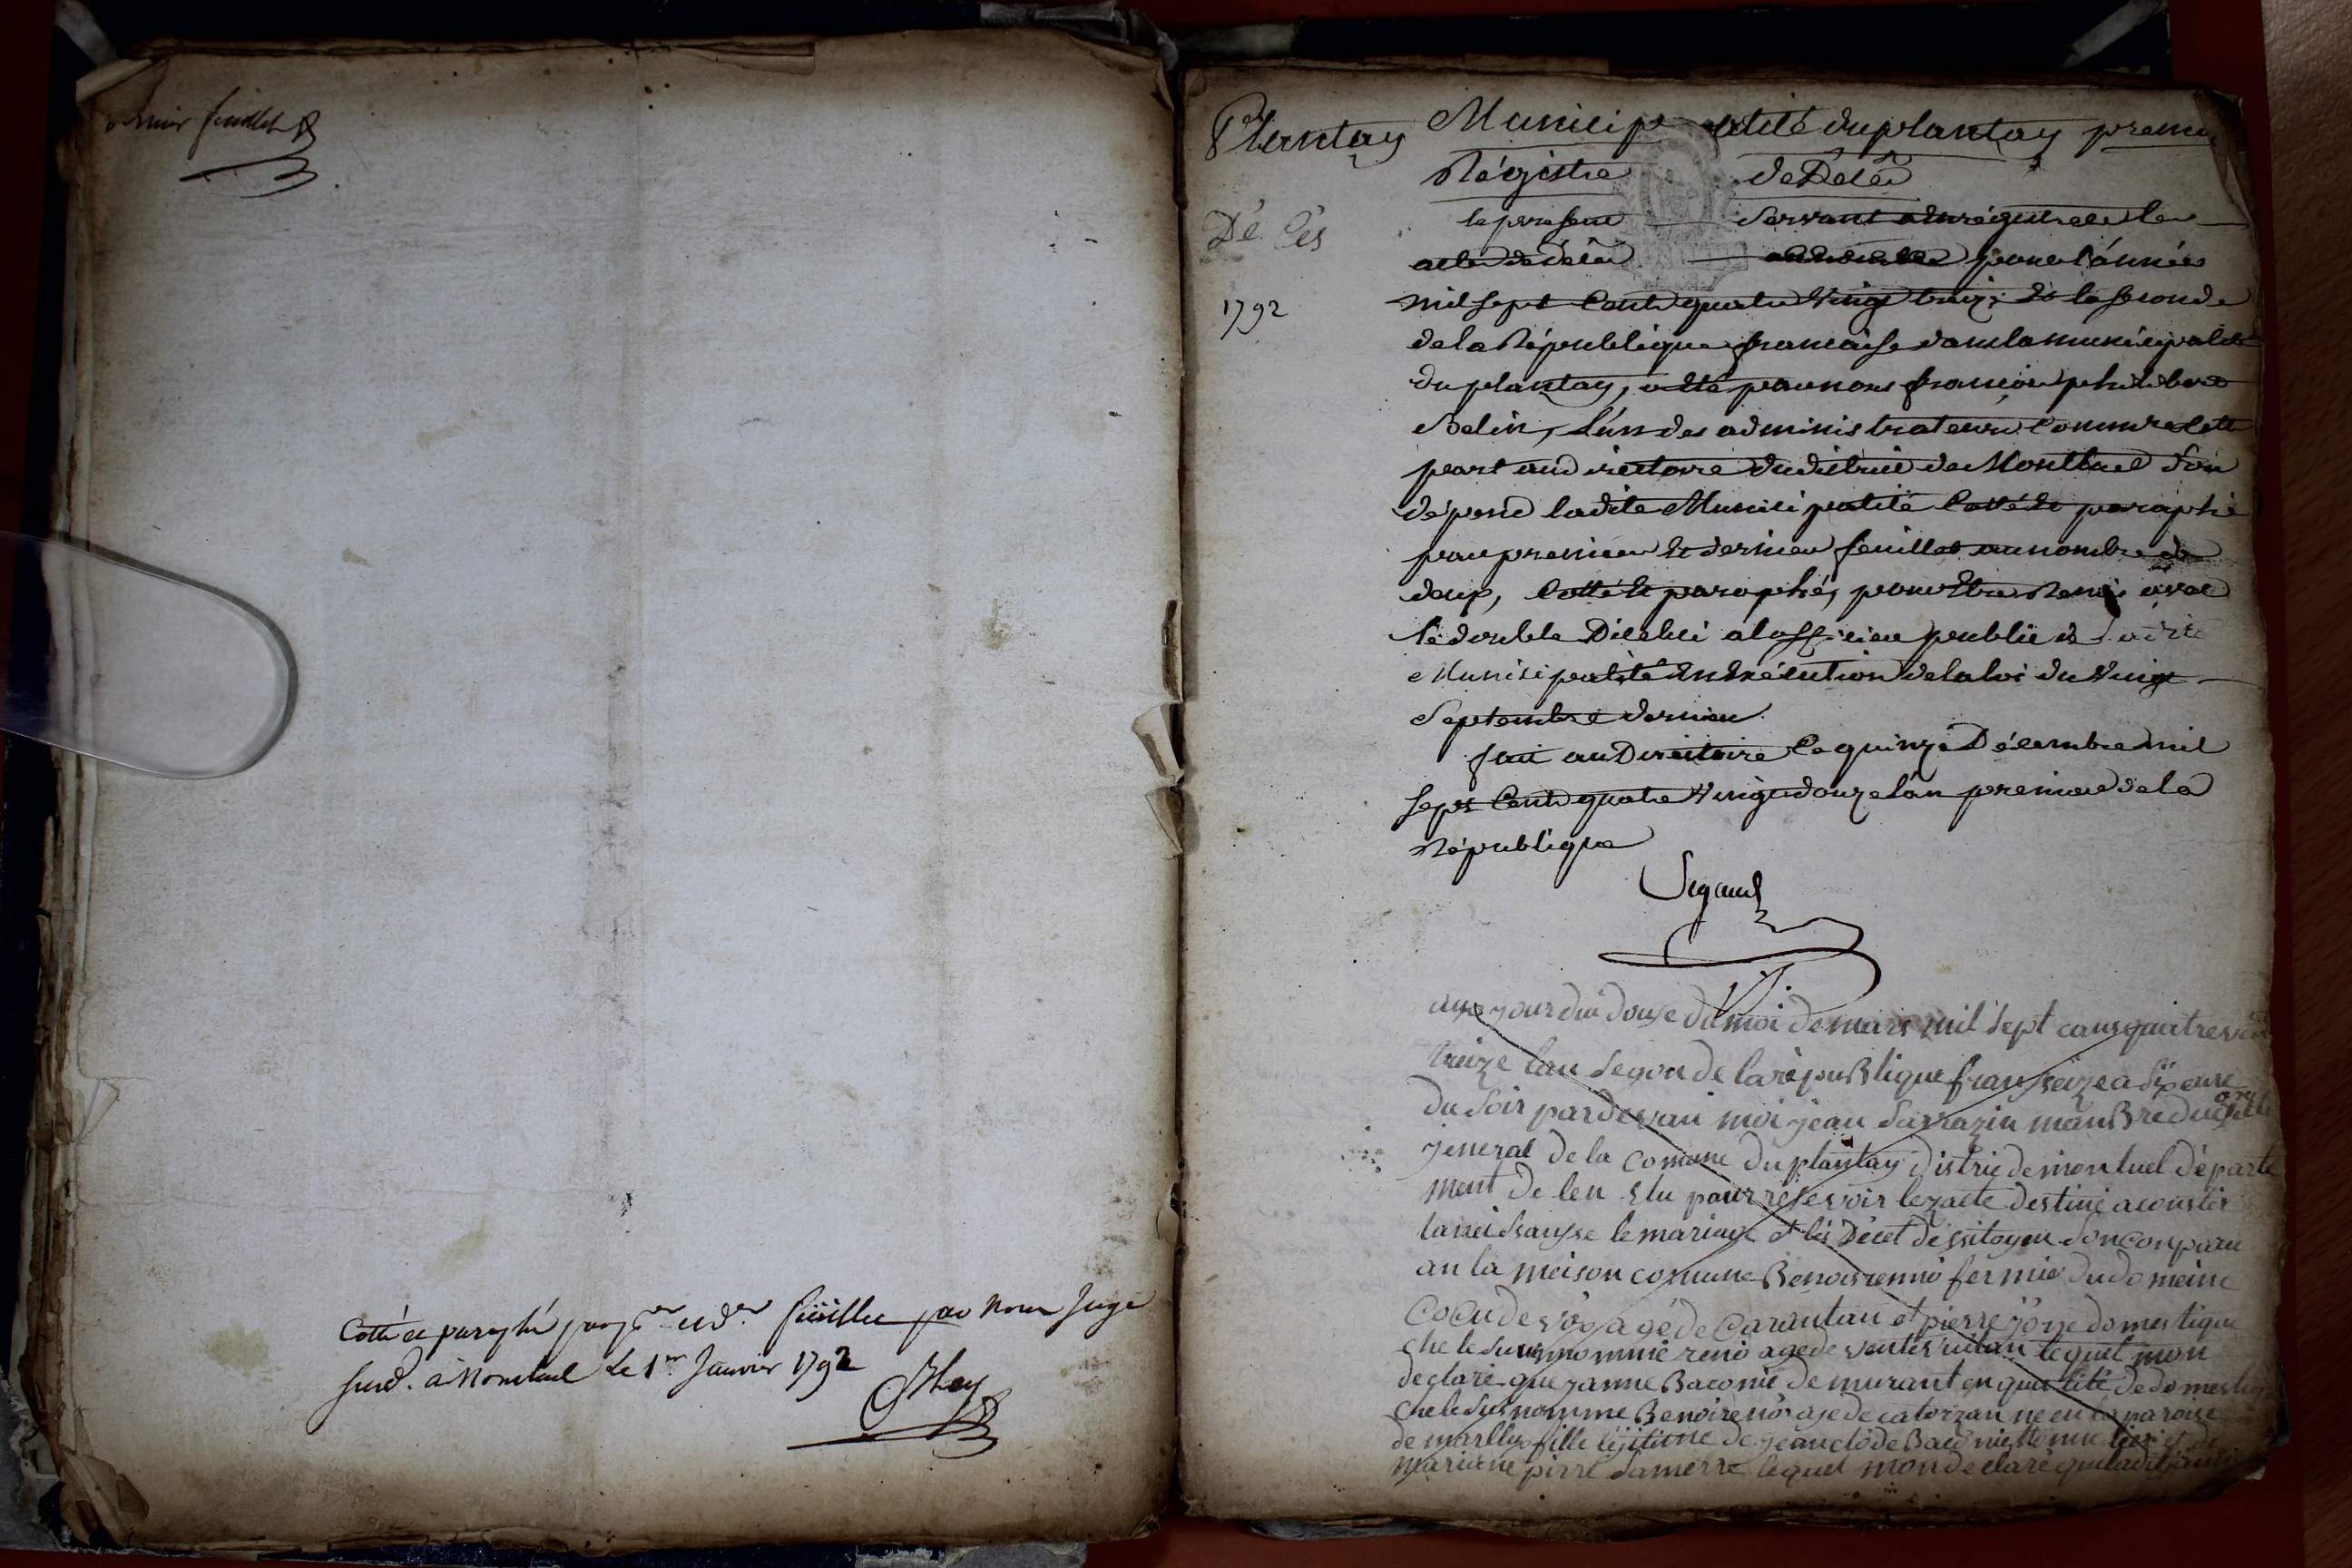 dernier feuillet
Cotté et paraphé par p.er et d.er feüillet par Nous Juge
susd. à Montluel Le 1.er Janvier 1792
Plantay
Décès
1792
Municipalité du plantay premier
Régistre de Décès
le présent servant a enrégistrer les
actes de décès pour l'année
mil sept Cent quatre Vingt treize Et la seconde
de la République francaise dans la municipalité
du plantay, a été par nous francois philibert
l'un des administrateurs Commre
part au directoire du district de Montluel d'ou
dépend ladite Municipalité Cotté Et paraphé
par premier Et dernier feuillet au nombre de
deux, Cotté Et paraphés, pour Etre Remis avec
le double D'icelui a l'officier public de ladite
Municipalité En Exécution de la loi du Vingt
Septembre dernier
fait au Directoire le quinze Décembre mil
sept Cent quatre Vingt douze l'an premier de la
République
Segaud
aujourdui douse du moi de mars mil sept cans quatres vin
treize lan segon de la republique franseize a
du soir pardevan moi jean Sarrazin manBre du
jeneral de la comune du plantay distric de montuel départe
ment de len elu pour resevoir lezacte destine a
la neisanse le mariage et les Décet de sitoyen
an la meison comune Benoi renno fermié du domeine
agé de Carantan et pierre domestique
che le nommé reno agé de lequel mon
declaré que janne Baconié demurant en qualité de domestiq
che le susnomme Benoi reno aje de catorzan ne en la paroise
de marllyo fille lejitime de jean clode Baconié
mariane pirre sa merre lequel mon declaré que